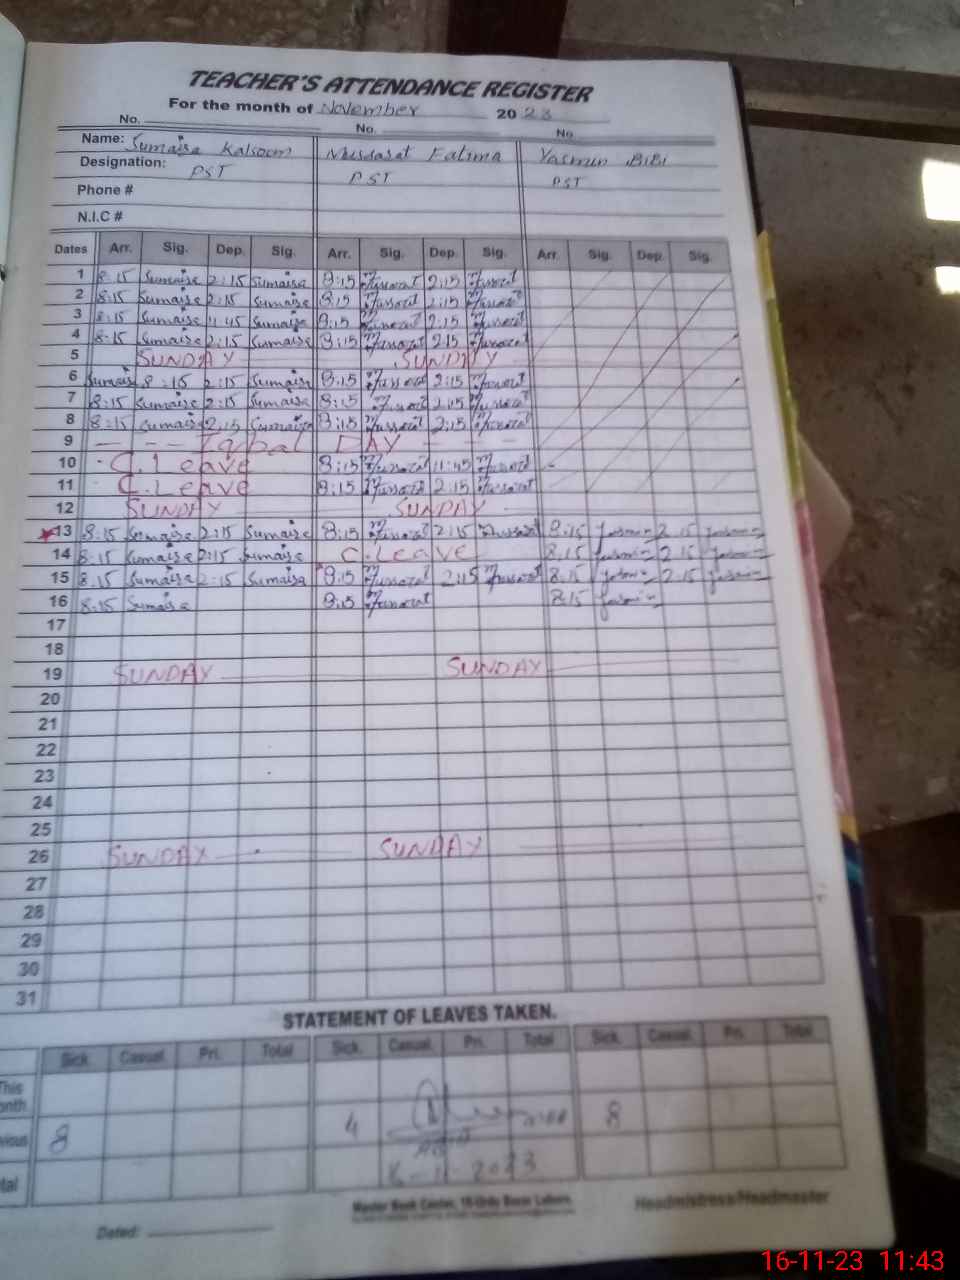 TEACHER'S ATTENDANCE REGISTER
For the month of November 2023
No. No. No.
Name: Sumaira Kalsoom Mussarat Fatima Yasmin BiBi
Designation: PST PST PST
Phone #
N.I.C #
Dates Arr. Sig. Dep. Sig. Arr. Sig. Dep. Sig. Arr. Sig. Dep. Sig.
1 8:15 Sumaira 2:15 Sumaira 8:15 Mussarat 2:15 Mussarat
2 8:15 Sumaira 2:15 Sumaira 8:15 Mussarat 2:15 Mussarat
3 8:15 Sumaira 11:45 Sumaira 8:15 Mussarat 2:15 Mussarat
4 8:15 Sumaira 2:15 Sumaira 8:15 Mussarat 2:15 Mussarat
5 SUNDAY SUNDAY
6 Sumaira 8:15 2:15 Sumaira 8:15 Mussarat 2:15 Mussarat
7 8:15 Sumaira 2:15 Sumaira 8:15 Mussarat 2:15 Mussarat
8 8:15 Sumaira 2:15 Sumaira 8:15 Mussarat 2:15 Mussarat
9 - - - Iqbal DAY - - -
10 C.Leave 8:15 Mussarat 11:45 Mussarat
11 C.Leave 8:15 Mussarat 2:15 Mussarat
12 SUNDAY SUNDAY
13 8:15 Sumaira 2:15 Sumaira 8:15 Mussarat 2:15 Mussarat 8:15 Yasmin 2:15 Yasmin
14 8:15 Sumaira 2:15 Sumaira C.Leave 8:15 Yasmin 2:15 Yasmin
15 8:15 Sumaira 2:15 Sumaira 8:15 Mussarat 2:15 Mussarat 8:15 Yasmin 2:15 Yasmin
16 8:15 Sumaira 8:15 Mussarat 8:15 Yasmin
17
18
19 SUNDAY SUNDAY
20
21
22
23
24
25
26 SUNDAY SUNDAY
27
28
29
30
31
STATEMENT OF LEAVES TAKEN.
Sick. Casual. Pri. Total Sick. Casual. Pri. Total Sick. Casual. Pri. Total
This
onth
vious 8 4 8
tal
11 2023
Master Book Center, 16-Urdu Bazar Lahore.
Headmistress/Headmaster
Dated:
16-11-23 11:43